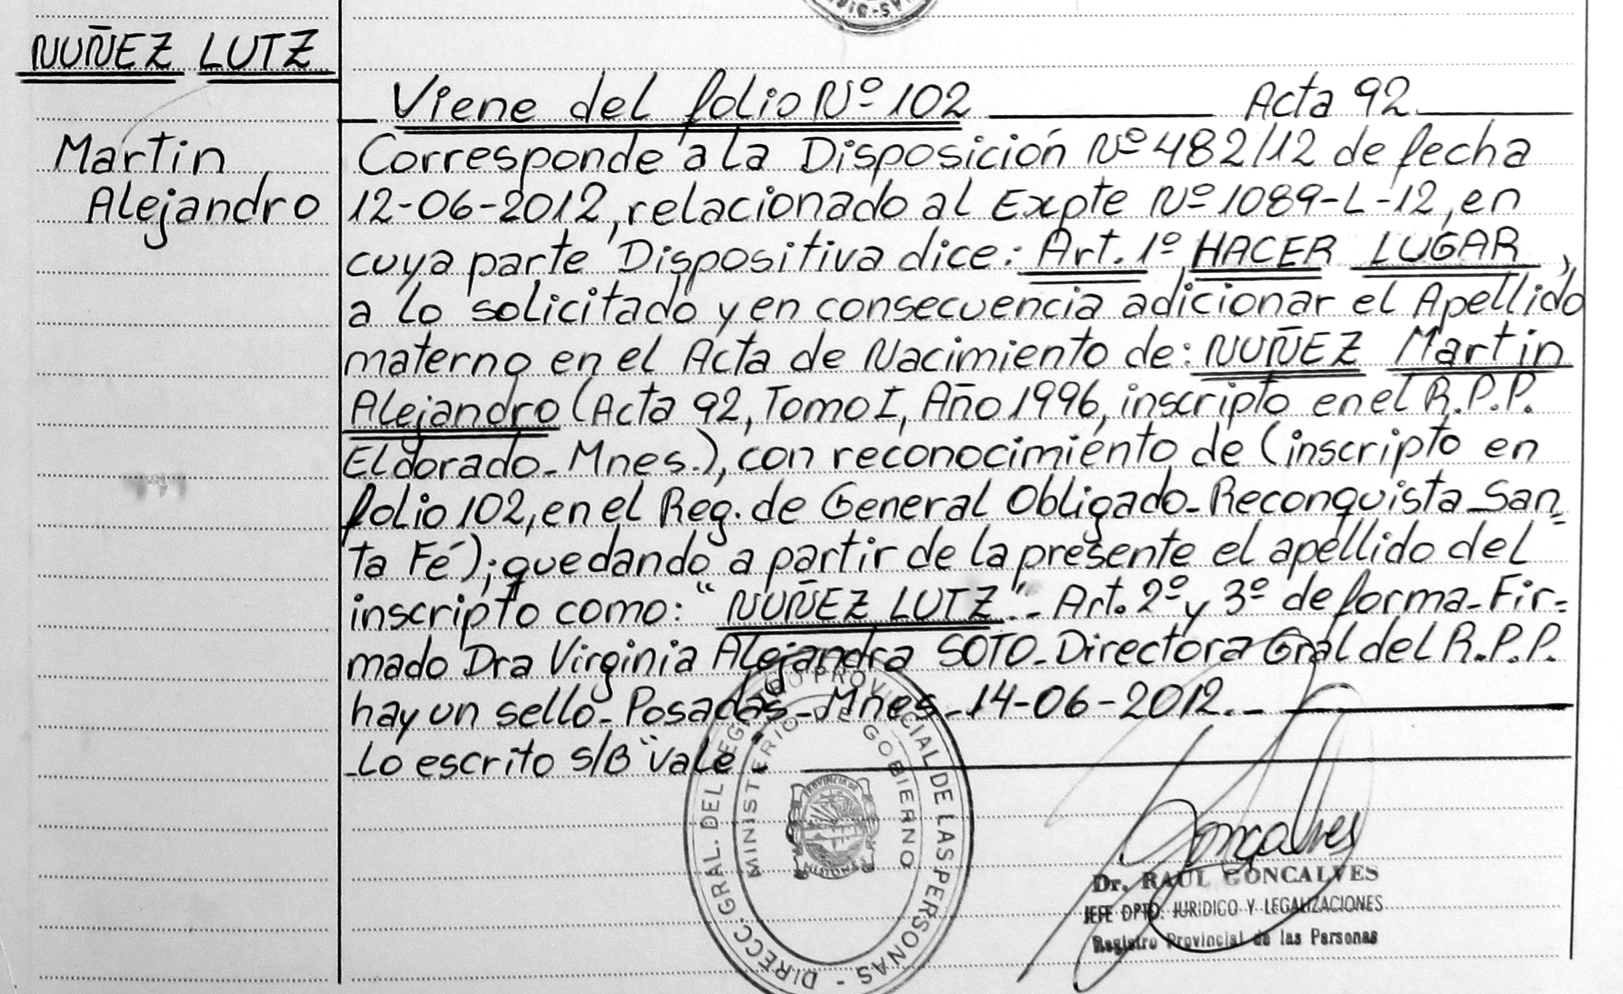 NUÑEZ LUTZ
Martin
Alejandro
Viene del folio Nº 102 Acta 92
Corresponde a la Disposición Nº 482/12 de fecha
12-06-2012, relacionado al Expte Nº 1089-L-12, en
cuya parte Dispositiva dice: Art. 1º HACER LUGAR,
a lo solicitado y en consecuencia adicionar el Apellido
materno en el Acta de Nacimiento de: NUÑEZ Martin
Alejandro (Acta 92, Tomo I, Año 1996, inscripto en el R.P.P.
Eldorado-Mnes.), con reconocimiento de (inscripto en
folio 102, en el Reg. de General Obligado-Reconquista-San=
ta Fé); quedando a partir de la presente el apellido del
inscripto como: "NUÑEZ LUTZ"- Art. 2º y 3º de forma-Fir=
mado Dra Virginia Alejandra SOTO-Directora Gral del R.P.P.
hay un sello-Posadas-Mnes-14-06-2012.-
-Lo escrito S/B "Vale".
DIRECC. GRAL. DEL REGISTRO PROVINCIAL DE LAS PERSONAS -
MINISTERIO DE GOBIERNO
PROVINCIA DE
MISIONES
Goncalves
Dr. RAUL GONCALVES
JEFE DPTO. JURIDICO Y LEGALIZACIONES
Registro Provincial de las Personas